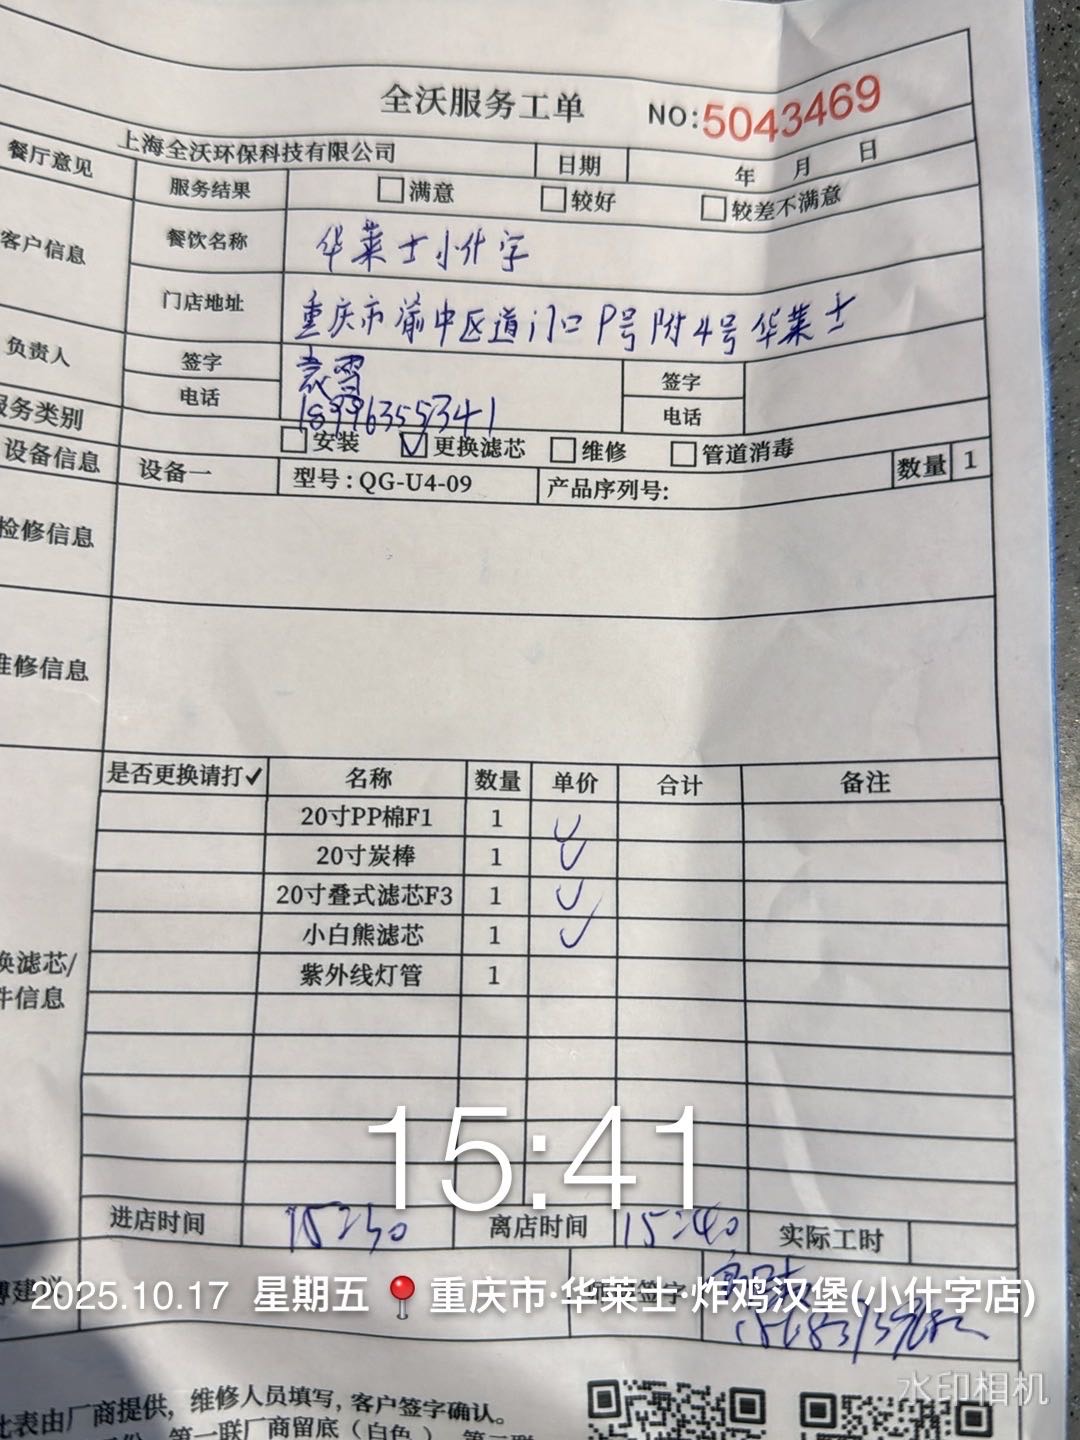 全沃服务工单 NO:5043469
上海全沃环保科技有限公司 日期 年 月 日
餐厅意见 服务结果 满意 较好 较差不满意
客户信息 餐饮名称 华莱士小什字
门店地址 重庆市渝中区道门口P号附4号华莱士
负责人 签字 袁雪 签字
电话 18996355341 电话
服务类别 安装 更换滤芯 维修 管道消毒
设备信息 设备一 型号:QG-U4-09 产品序列号: 数量 1
检修信息
维修信息
是否更换请打✓ 名称 数量 单价 合计 备注
20寸PP棉F1 1 ✓
20寸炭棒 1 ✓
20寸叠式滤芯F3 1 ✓
小白熊滤芯 1 ✓
紫外线灯管 1
换滤芯/
件信息
15:41
进店时间 15:30 离店时间 15:40 实际工时
建议 签字
2025.10.17 星期五 重庆市·华莱士·炸鸡汉堡(小什字店)
水印相机
此表由厂商提供，维修人员填写，客户签字确认。
第一联厂商留底（白色）